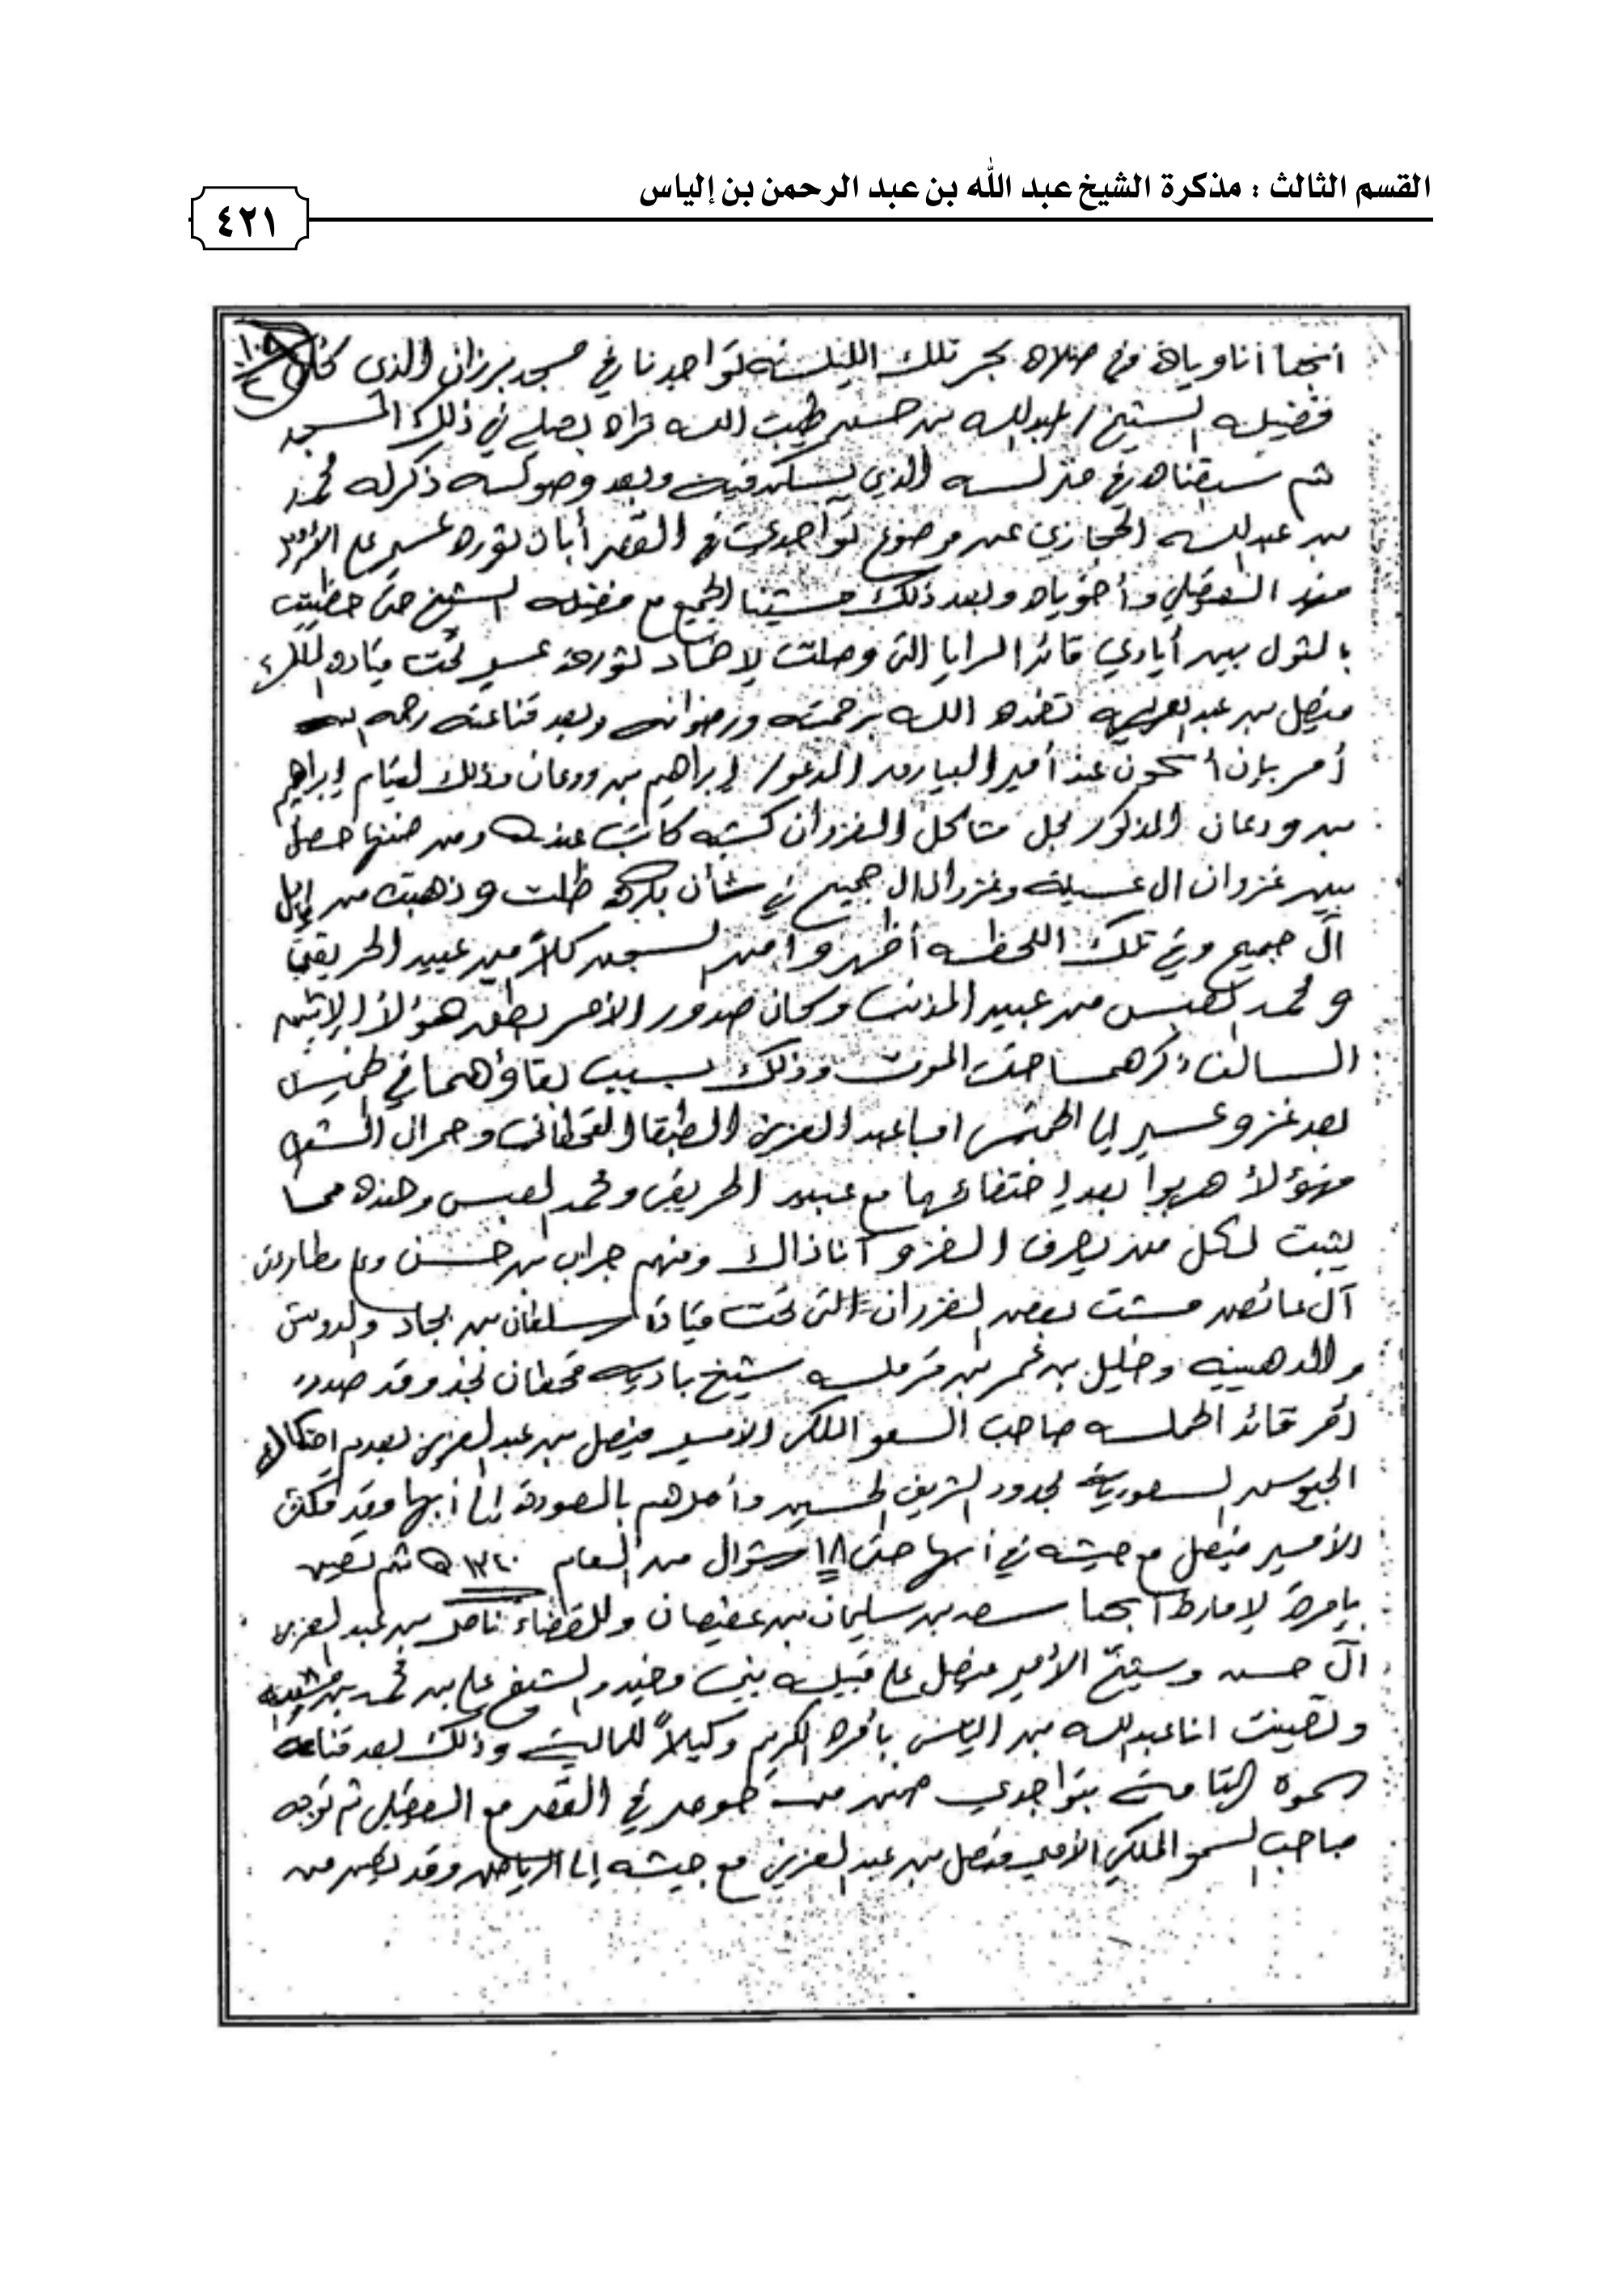 القسم الثالث : مذكرة الشيخ عبد الله بن عبد الرحمن بن إلياس
٤٢١
أبها أنا وياه في صلاة فجر تلك الليلة تواجدنا في مسجد برزان الذي كان
فضيلة الشيخ / عبدالله بن حسن طيب الله ثراه يصلي في ذلك المسجد
ثم سبقناه في منزله الذي يسكن فيه وبعد وصوله ذكر له محمد
بن عبدالله الحجازي عن موضوع تواجدي في القصر أبان ثورة عسير على الأمير
فهد العقيلي وأخوياه وبعد ذلك مشينا الجميع مع فضيلة الشيخ حتى حظيت
بالمثول بين أيادي قائد السرايا التي وصلت لإخماد ثورة عسير تحت قيادة الملك
فيصل بن عبدالعزيز تغمده الله برحمته ورضوانه وبعد قناعته رحمه الله
أمر بإن أكون عند أمير البيارق المدعو / إبراهيم بن ودعان وذلك لقيام إبراهيم
بن ودعان المذكور بحل مشاكل الغزوان كشبه كاتب عنده ومن ضمنها حصل
بين غزوان ال عسيلة وغزوان ال جميح في شأن بكرة ظلت وذهبت من إبل
آل جميح وفي تلك اللحظة أظهروا من السجن كلاً من عبيد الحريقي
و محمد من عبيد وكان صدور الأمر هؤلاء الإثنين
السالف ذكرهما حتى الموت وذلك بسبب بقاؤهما في خميس
بعد غزو عسير إلى الخميس عبدالعزيز القحطاني و حمران
فهؤلاء هربوا بعد إختفائهما مع عبيد الحريقي ومحمد وهذه مما
يثبت لكل من يعرف الغزو آنا ذاك ومنهم جراب بن حسن وعلى مطاردين
آل عائض مشت بعض الغزوان التي تحت قيادة سلطان بن بجاد والدويش
والدهينه وخليل بن عمر بن قرمله شيخ بادية قحطان نجد وقد صدر
أمر قائد الحملة صاحب السمو الملكي الأمير فيصل بن عبدالعزيز بعدم احتكاك
الجيوش السعودية بحدود الشريف الحسين وأمرهم بالعودة إلى أبها وقد مكث
الأمير فيصل مع جيشه في أبها حتى ١٨ شوال من العام ١٣٤٠ هـ ثم تعين
بإمرة لإمارة أبها سعد بن سليمان بن عفيصان وللقضاء ناصر بن عبدالعزيز
آل حسن وشيّخ الأمير فيصل على قبيلة بني مغيد الشيخ علي بن محمد بن مشيبه
وتعينت انا عبدالله بن الياس بأمره الكريم وكيلاً للمالية وذلك بعد قناعة
سموه التامة بتواجدي ضمن من حوصر في القصر مع العقيلي ثم توجه
صاحب السمو الملكي الأمير فيصل بن عبدالعزيز مع جيشه إلى الرياض وقد من